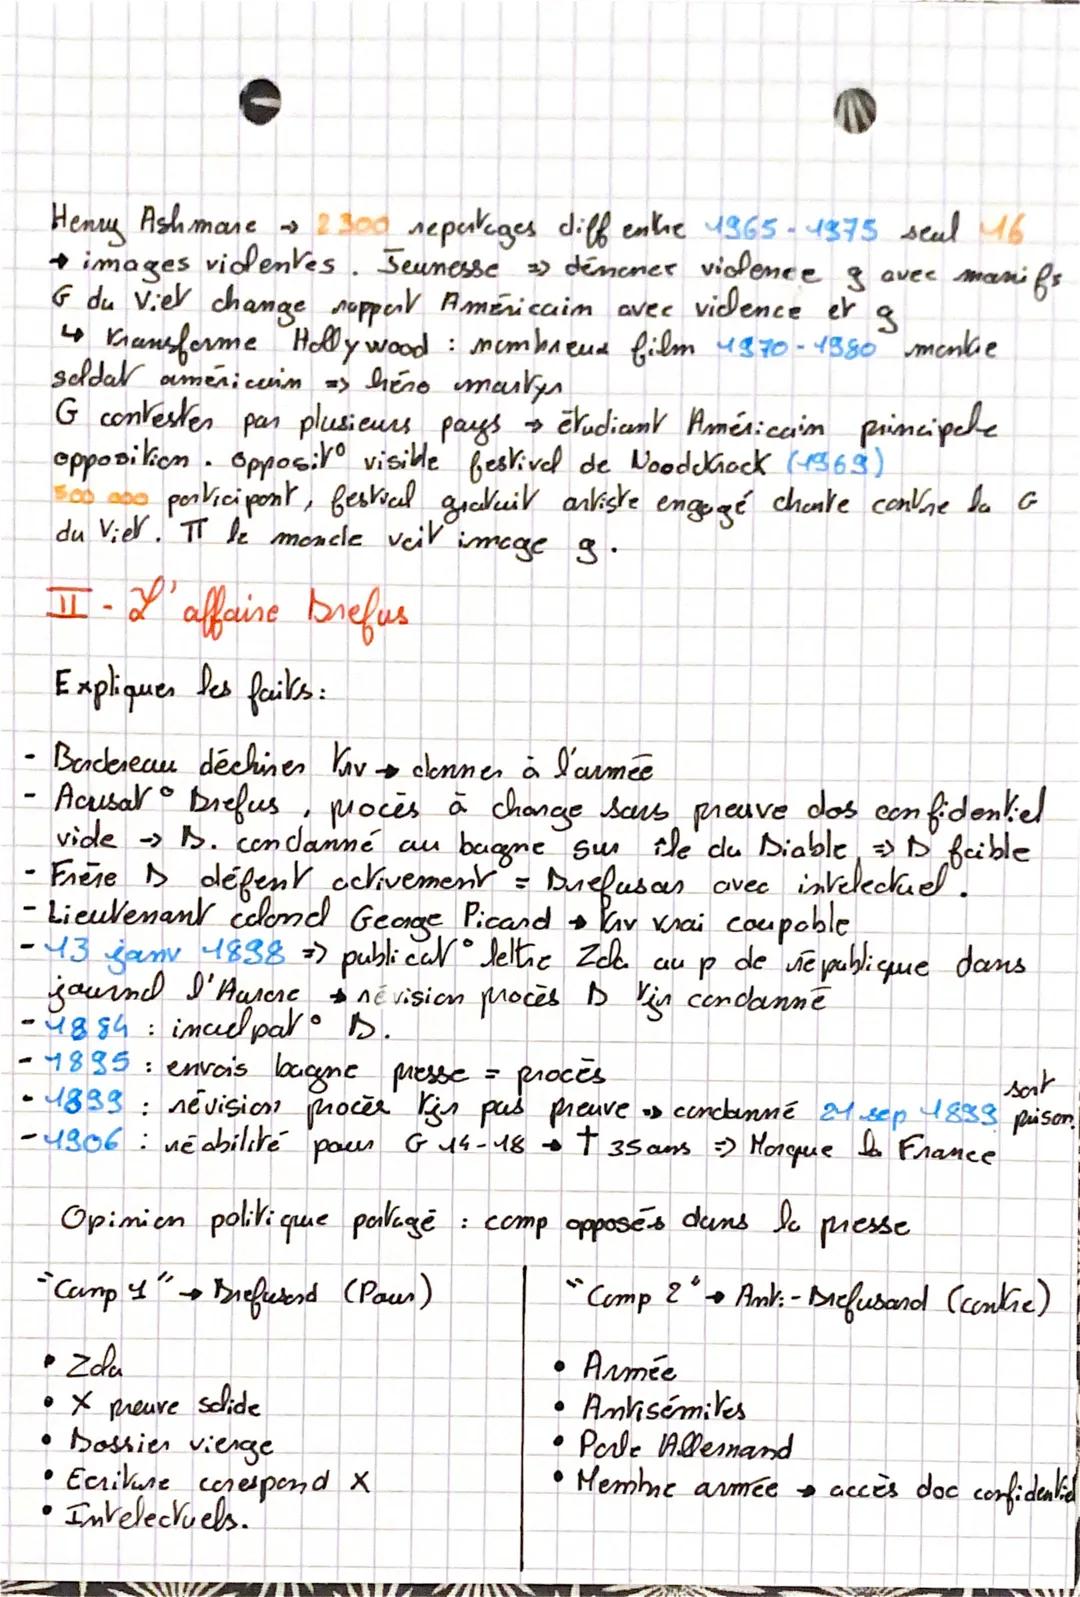 Henry Ashmare → 2300 reportages diff entre 1965-1975 seul 46
→ images violentes. Jeunesse => dénoncer violence g avec manifs
G du Viet change rapport Américain avec violence et g
↳ transforme Hollywood : nombreux film 1970-1980 montre
soldat américain => héro martyr
G contester par plusieurs pays → étudiant Américain principale
opposition. Opposit° visible festival de Woodckock (1969)
500 000 participant, festival gratuit artiste engagé chante contre la G
du Viet. TT le monde voit image g.
II - L'affaire Drefus
Expliquer les faits :
- Bordereau déchirer trv → donner à l'armée
- Acusat° Drefus, procès à charge sans preuve dos confidentiel
vide → D. condanné au bagne sur île du Diable => D faible
- Frère D défent activement = Drefusar avec intelectuel.
- Lieutenant colonel George Picard → trv vrai coupable
- 13 janv 1898 => publicat° lettre Zola au p de république dans
journal l'Aurore → révision procès D tjr condanné
- 1884 : inculpat° D.
- 1895 : envois bagne presse = procès
- 1899 : révision procès tjr pas preuve => condanné 21 sep 1899 sort prison.
- 1906 : réabilité pour G 14-18 → † 35 ans => Morque la France
Opinion politique partagé : camp opposés dans la presse
"Camp 1" → Drefusard (Pour)
• Zola
• X preuve solide
• Dossier vierge
• Ecriture corespond X
• Intelectuels.
"Camp 2" → Anti-Drefusard (contre)
• Armée
• Antisémites
• Parle Allemand
• Membre armée → accès doc confidentiel